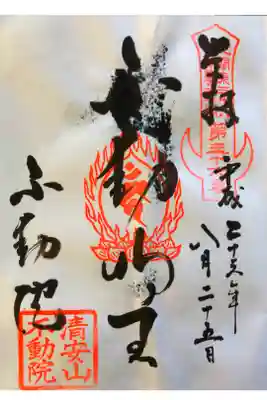 奉拝
平成二十六年
八月二十五日
不動明王
不動院
清安山
不動院